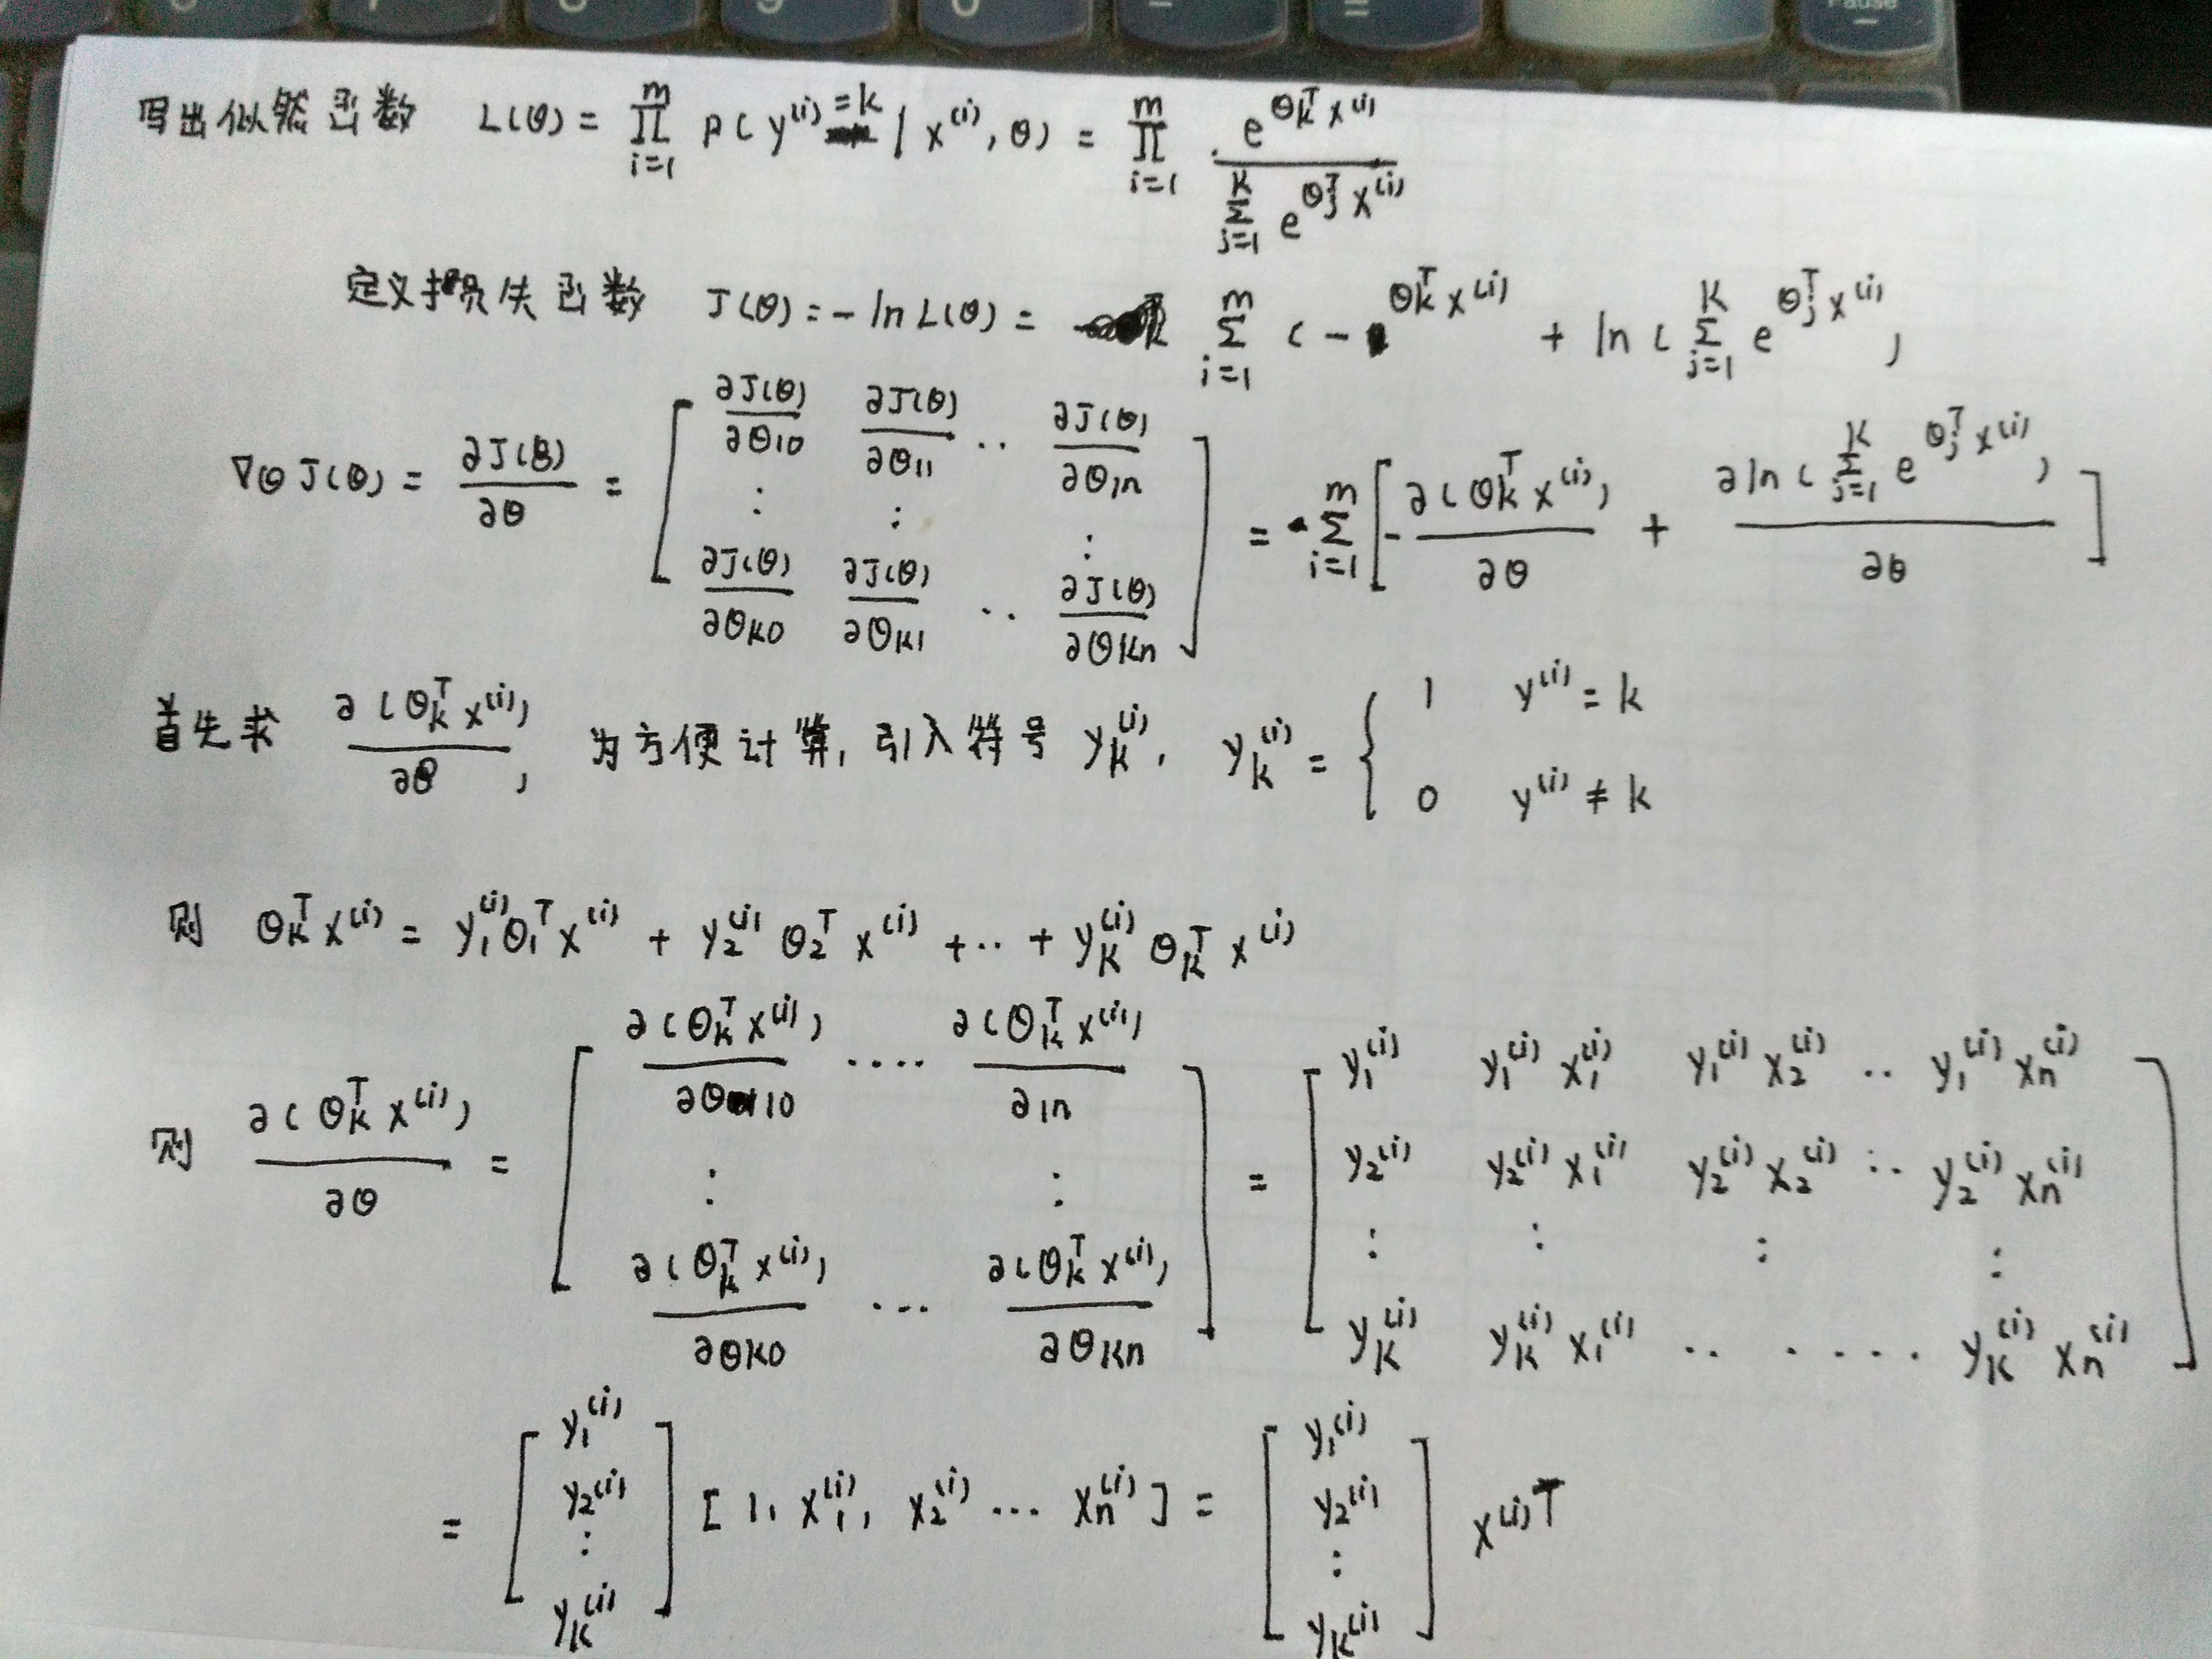 写出似然函数 L(θ) = ∏_{i=1}^{m} P(y^{(i)}=k | x^{(i)}, θ) = ∏_{i=1}^{m} \frac{e^{θ_k^T x^{(i)}}}{∑_{j=1}^{K} e^{θ_j^T x^{(i)}}}
定义损失函数 J(θ) = -ln L(θ) = ∑_{i=1}^{m} ( - θ_k^T x^{(i)} + ln ( ∑_{j=1}^{K} e^{θ_j^T x^{(i)}} )
∇θ J(θ) = \frac{∂J(θ)}{∂θ} = [ \frac{∂J(θ)}{∂θ10} \frac{∂J(θ)}{∂θ11} ·· \frac{∂J(θ)}{∂θ1n} ; ⋮ ⋮ ⋮ ; \frac{∂J(θ)}{∂θK0} \frac{∂J(θ)}{∂θK1} ·· \frac{∂J(θ)}{∂θKn} ] = ∑_{i=1}^{m} [ - \frac{∂(θ_k^T x^{(i)})}{∂θ} + \frac{∂ln(∑_{j=1}^{K} e^{θ_j^T x^{(i)}})}{∂θ} ]
首先求 \frac{∂(θ_k^T x^{(i)})}{∂θ}, 为方便计算, 引入符号 y_k^{(i)}, y_k^{(i)} = { 1 y^{(i)} = k ; 0 y^{(i)} ≠ k
则 θ_k^T x^{(i)} = y_1^{(i)} θ_1^T x^{(i)} + y_2^{(i)} θ_2^T x^{(i)} + ·· + y_K^{(i)} θ_K^T x^{(i)}
则 \frac{∂(θ_k^T x^{(i)})}{∂θ} = [ \frac{∂(θ_k^T x^{(i)})}{∂θ10} ···· \frac{∂(θ_k^T x^{(i)})}{∂1n} ; ⋮ ⋮ ; \frac{∂(θ_k^T x^{(i)})}{∂θK0} ··· \frac{∂(θ_k^T x^{(i)})}{∂θKn} ] = [ y_1^{(i)} y_1^{(i)} x_1^{(i)} y_1^{(i)} x_2^{(i)} ·· y_1^{(i)} x_n^{(i)} ; y_2^{(i)} y_2^{(i)} x_1^{(i)} y_2^{(i)} x_2^{(i)} ·· y_2^{(i)} x_n^{(i)} ; ⋮ ⋮ ⋮ ⋮ ; y_K^{(i)} y_K^{(i)} x_1^{(i)} ·· ···· y_K^{(i)} x_n^{(i)} ]
= [ y_1^{(i)} ; y_2^{(i)} ; ⋮ ; y_K^{(i)} ] [ 1, x_1^{(i)}, x_2^{(i)} ··· x_n^{(i)} ] = [ y_1^{(i)} ; y_2^{(i)} ; ⋮ ; y_K^{(i)} ] x^{(i)T}